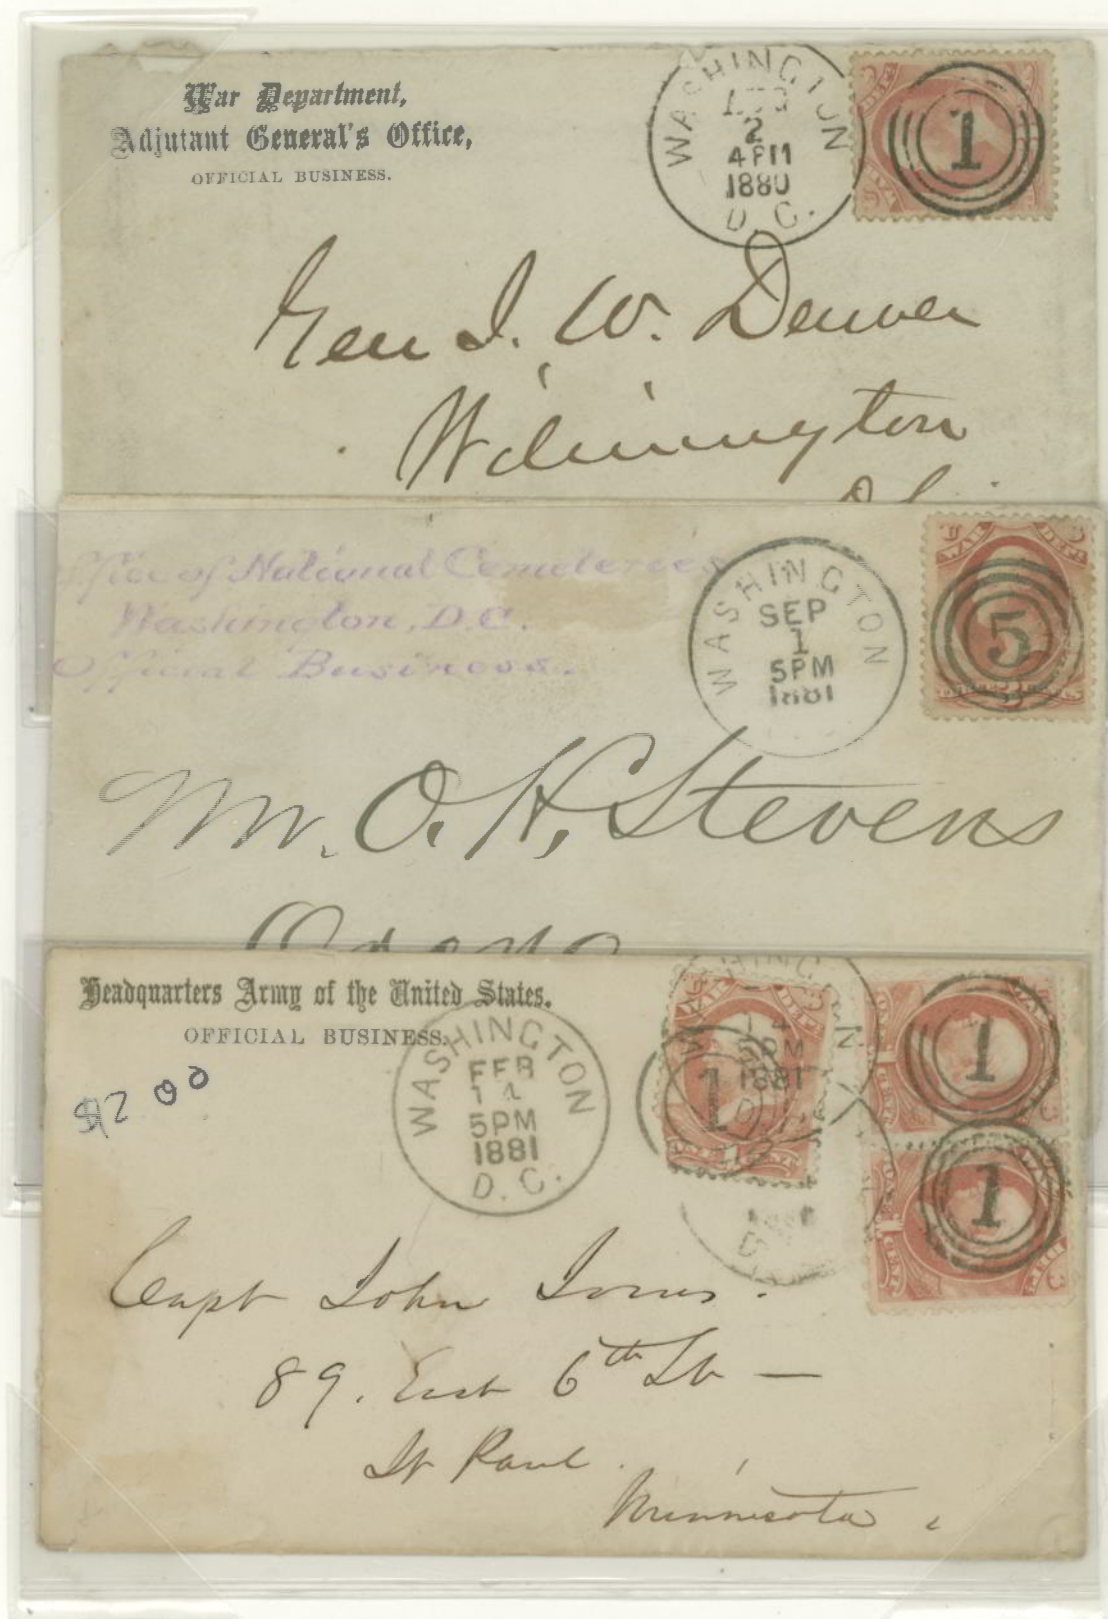 War Department,
Adjutant General's Office,
OFFICIAL BUSINESS.
WASHINGTON
AUG
2
4 PM
1880
D. C.
1
Gen J. W. Denver
Wilmington
Office of National Cemeteries
Washington, D.C.
Official Business.
WASHINGTON
SEP
1
5PM
1881
U S
WAR DEPT.
5
Mr. O. H. Stevens
Headquarters Army of the United States.
OFFICIAL BUSINESS.
$12 00
WASHINGTON
FEB
14
5PM
1881
D. C.
14
5PM
1881
1
1
1
Capt John Jones.
89. East 6th St —
St Paul.
Minnesota